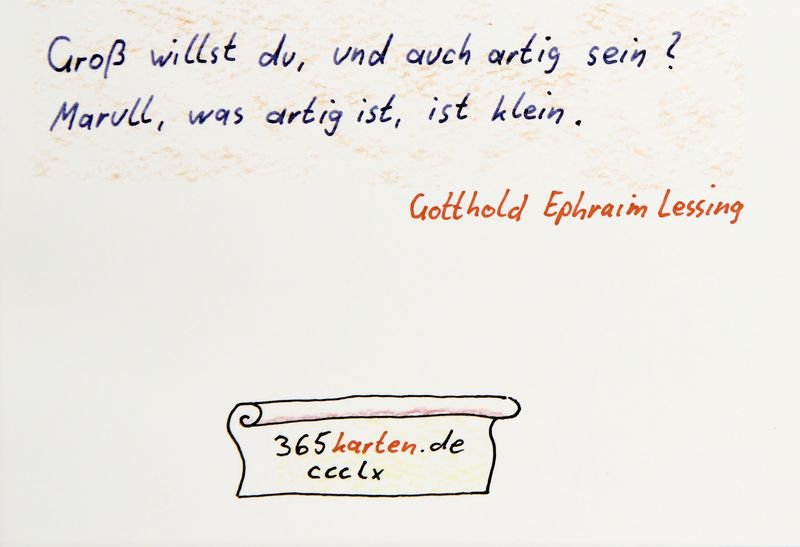 Groß willst du, und auch artig sein?
Marull, was artig ist, ist klein.
Gotthold Ephraim Lessing
365karten.de
ccclx